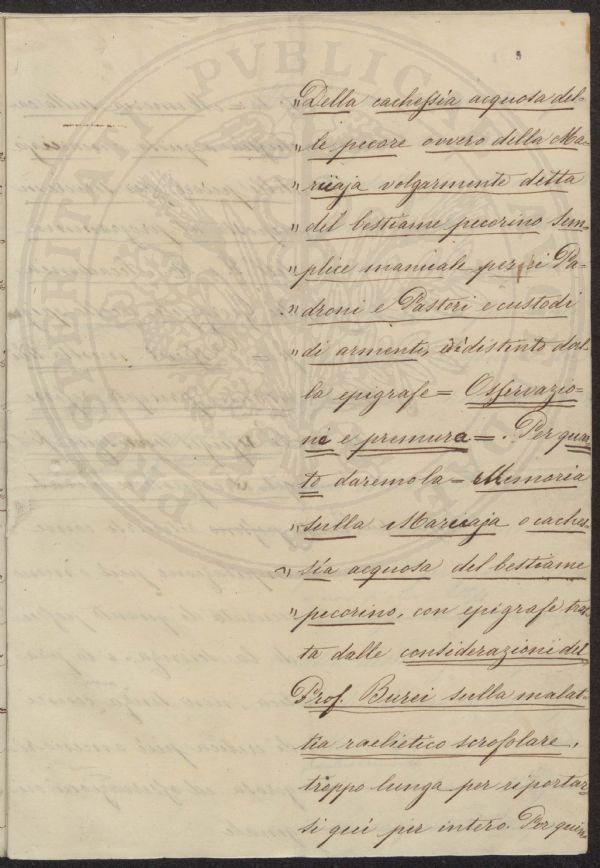 5
„Della cachessia acquosa del-
„le pecore ovvero della Ma-
„rciaja volgarmente detta
„del bestiame pecorino sem-
„plice manuale per i Pa-
„droni e Pastori e custodi
„di armenti, distinto dal-
la epigrafe = Osservazio-
ni e premura =. Per quar-
to daremo la = Memoria
„sulla Marciaja o caches-
„sia acquosa del bestiame
„pecorino, con epigrafe trat-
ta dalle considerazioni del
Prof. Burci sulla malat-
tia rachietico scrofolare,
troppo lunga per riportar-
si qui per intero. Per quin-
PROSPERITATI PVBLICAE AVGENDAE